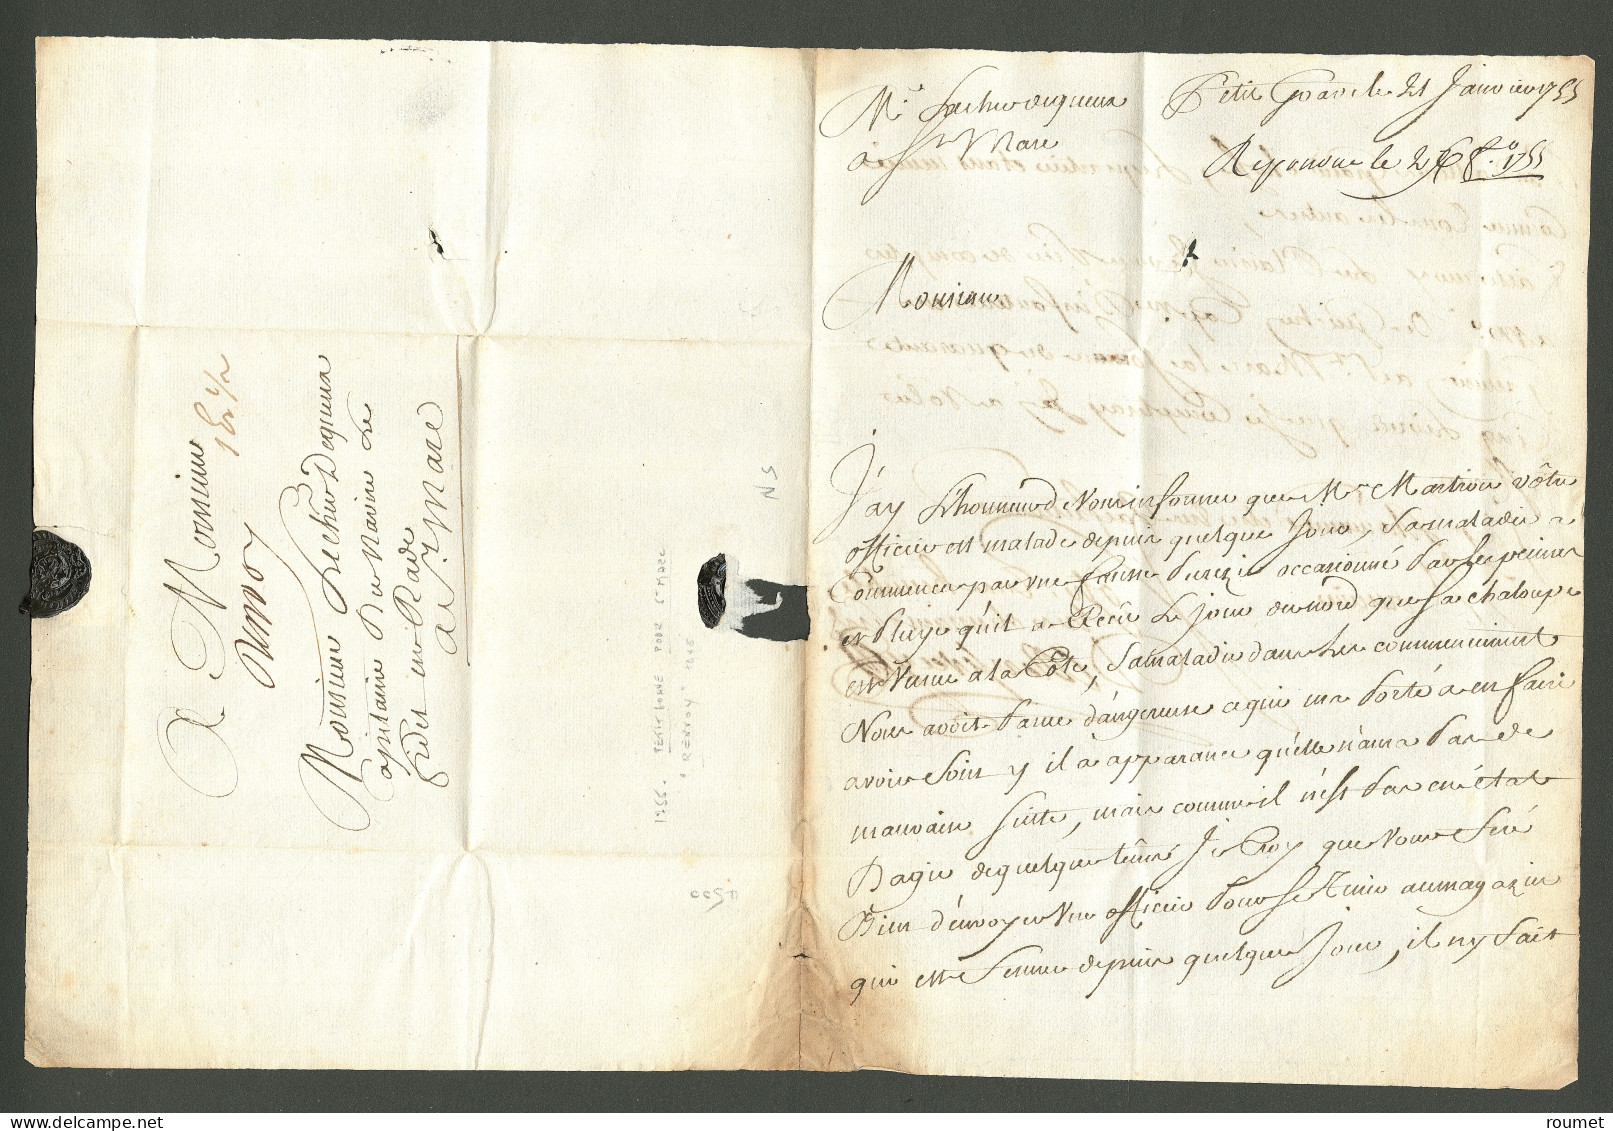 A Monsieur
Renvoy
Monsieur Lechev Dequeux
Capitaine Du Navire Le
en Rade
a St Marc
1755. PETIT GOAVE POUR ST MARC
"RENVOY" RARE
NS
Mr. Dequeux
a St Marc
Petit Goave le 21 Janvier 1755
Repondue le 1755
Monsieur
J'ay L'honneur de Vous informer que Mr Martion vôtre
officier est malade depuis quelque Jour, Sa maladie a
Commencé par une fausse Plurezie occasionné Par les peines
et Pluye qu'il a Reçue Le jour du nord que Sa chaloupe
est Venue a la Côte, Sa maladie dans Les commencement
Nous avoit Parue dângereuse ce qui ma Porté a en faire
avoir Soin Y il a apparance qu'elle n'aura Pas de
mauvaise suitte, mais comme il n'est Pas en état
D'agir de quelque tems Je Croy que Vous Feré
Bien d'envoyer un officier Pour Se Tenir au magazin
qui est Fermé depuis quelque Jour, il n'y fait
www.roumet.fr